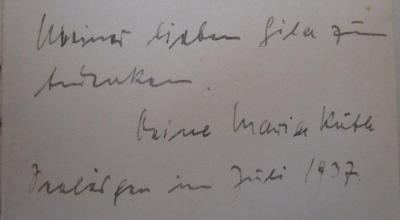 Meiner lieben Gila zum
Andenken.
Deine Maria Ruth
im Juli 1937.